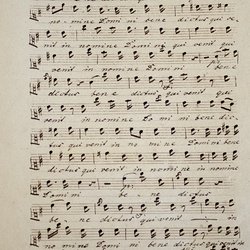 no- mine Domi mi bene dictus qui ve
nit in nomine Domini qui venit qui
venit in nomine Domi ni bene
dictus bene dictus qui
venit in nomine Do mi ni bene dic-
tus qui venit in no, mine Domini bene
dictus qui venit in nomine in nomine
Domi ni be dictus
be- ne dictus qui venit in
no mine Domi mi bene dictus qui venit